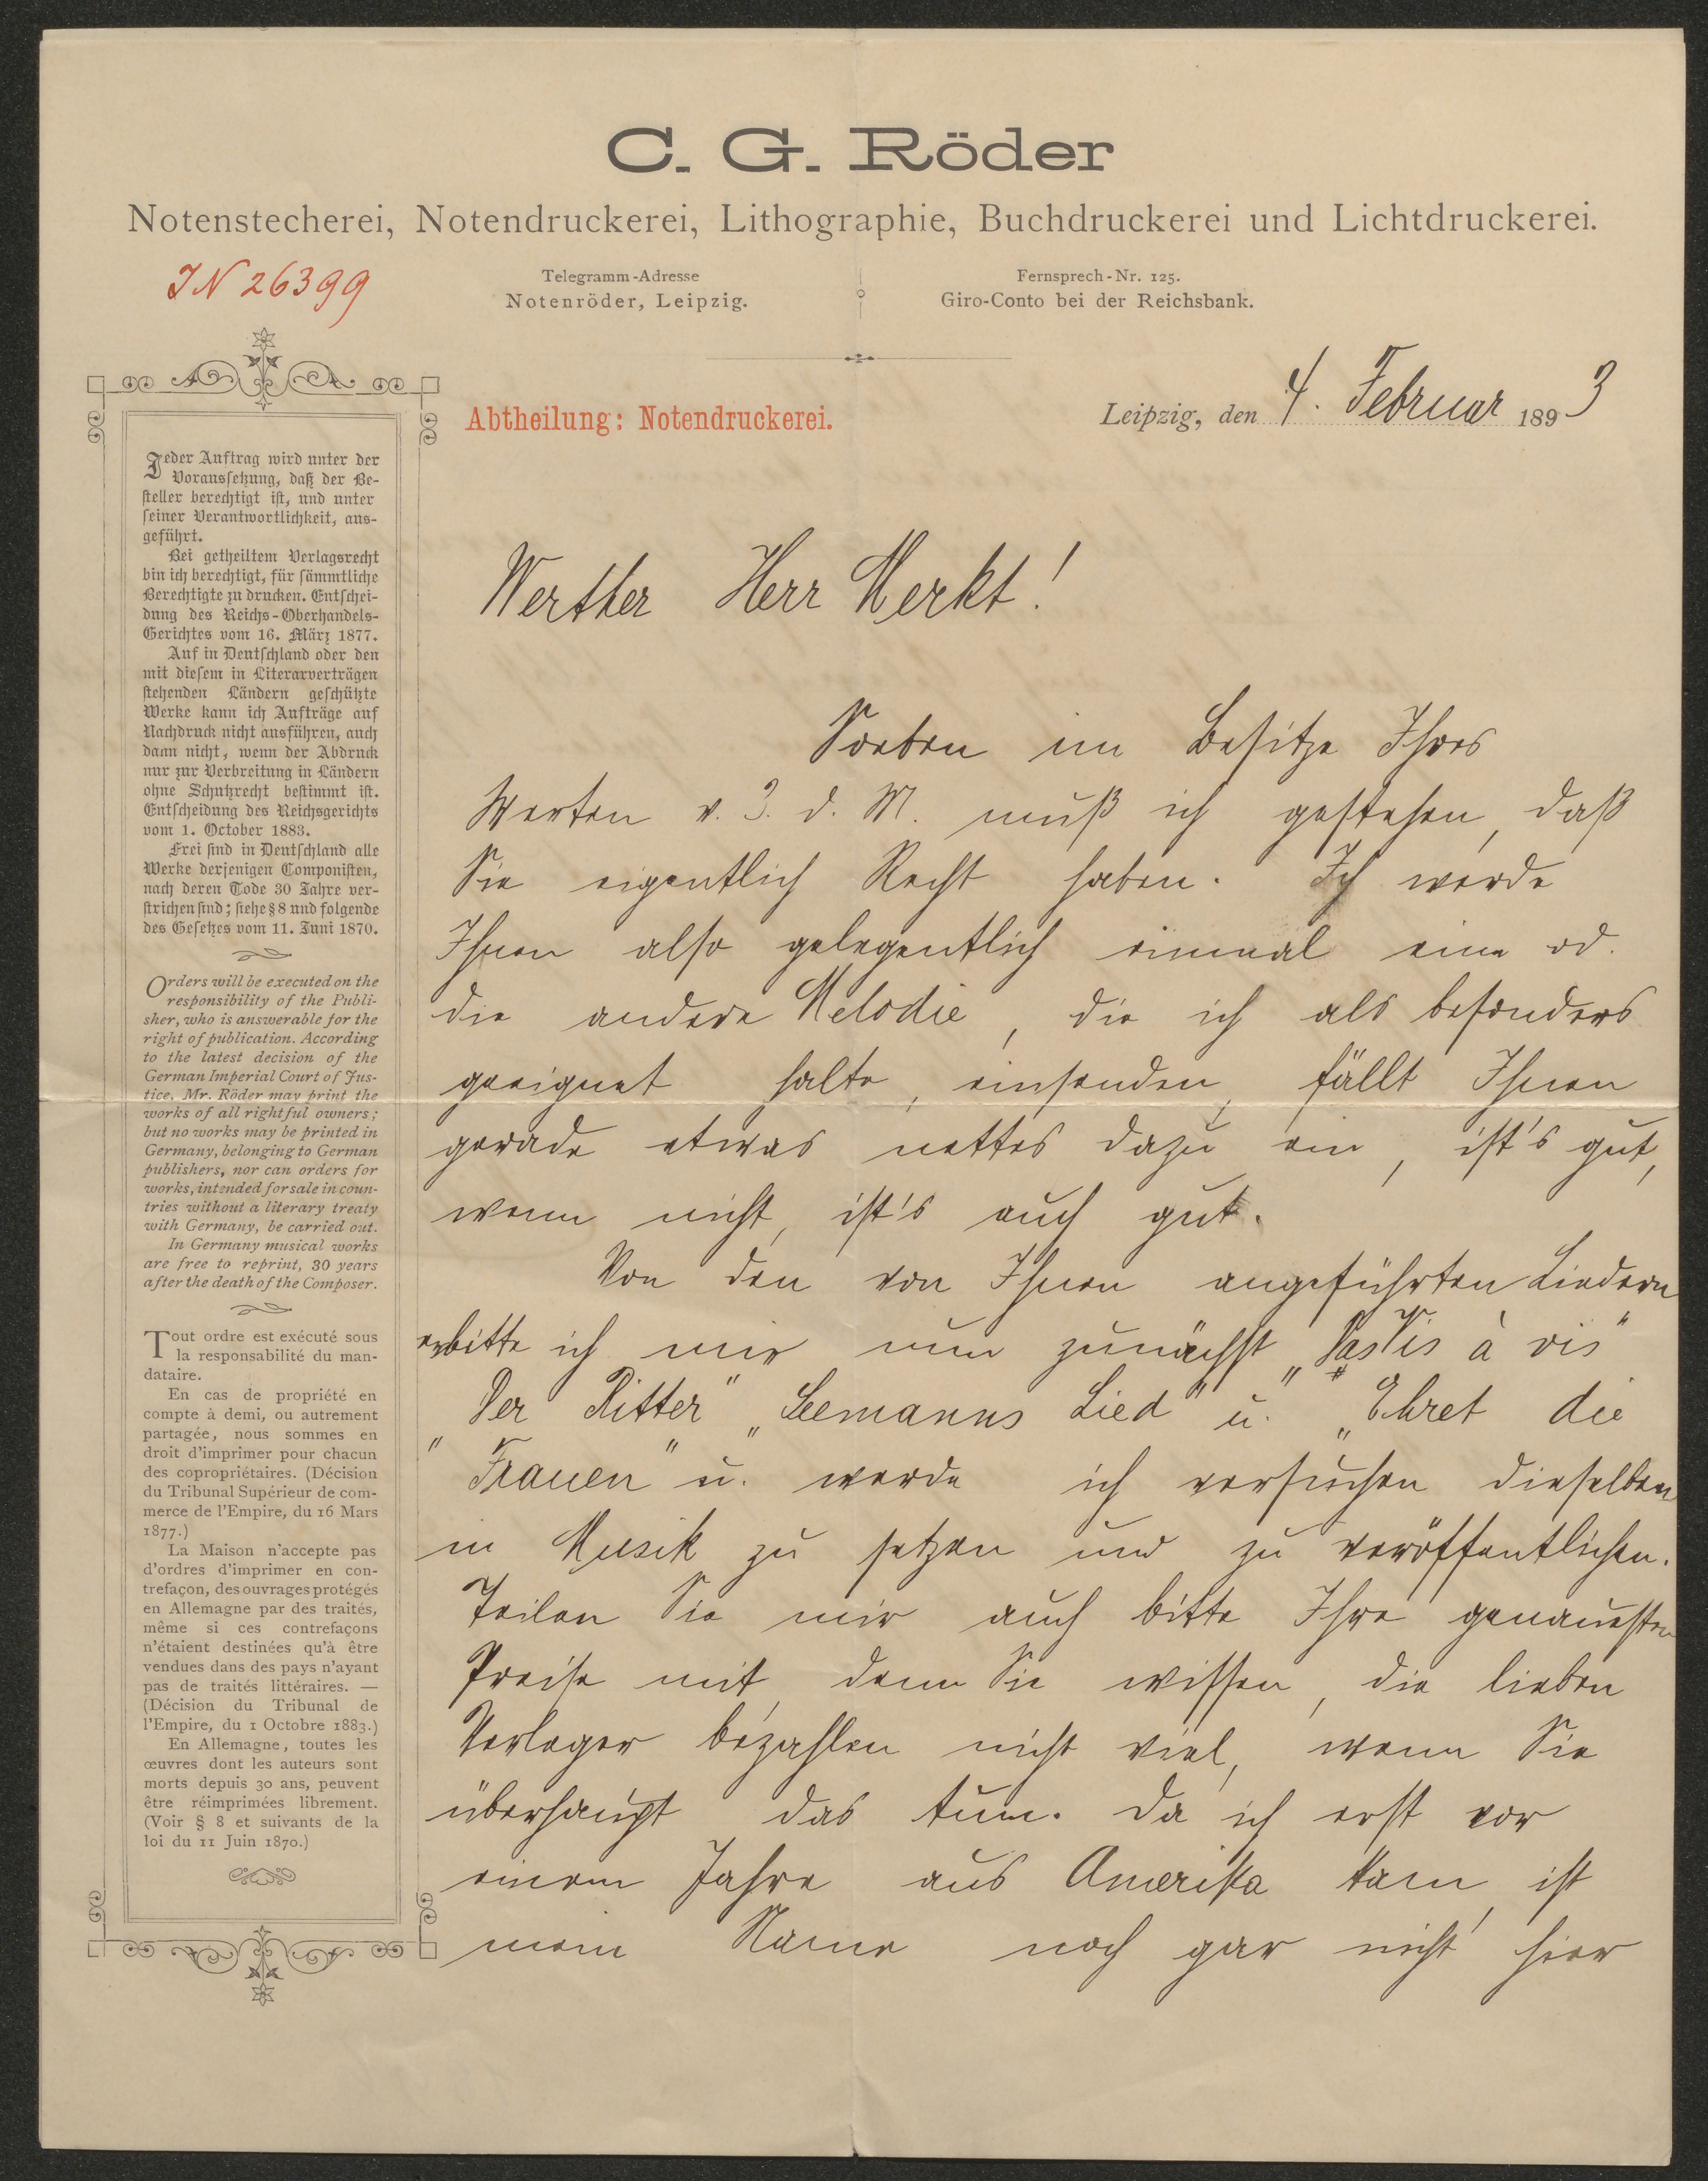 C. G. Röder
Notenstecherei, Notendruckerei, Lithographie, Buchdruckerei und Lichtdruckerei.
IN 26399
Telegramm-Adresse
Notenröder, Leipzig.
Fernsprech-Nr. 125.
Giro-Conto bei der Reichsbank.
Abtheilung: Notendruckerei.
Leipzig, den 4. Februar 1893
Jeder Auftrag wird unter der
Voraussetzung, daß der Be-
steller berechtigt ist, und unter
seiner Verantwortlichkeit, aus-
geführt.
Bei getheiltem Verlagsrecht
bin ich berechtigt, für sämmtliche
Berechtigte zu drucken. Entschei-
dung des Reichs-Oberhandels-
Gerichtes vom 16. März 1877.
Auf in Deutschland oder den
mit diesem in Literarverträgen
stehenden Ländern geschützte
Werke kann ich Aufträge auf
Nachdruck nicht ausführen, auch
dann nicht, wenn der Abdruck
nur zur Verbreitung in Ländern
ohne Schutzrecht bestimmt ist.
Entscheidung des Reichsgerichts
vom 1. October 1883.
Frei sind in Deutschland alle
Werke derjenigen Componisten,
nach deren Tode 30 Jahre ver-
strichen sind; siehe § 8 und folgende
des Gesetzes vom 11. Juni 1870.
Orders will be executed on the
responsibility of the Publi-
sher, who is answerable for the
right of publication. According
to the latest decision of the
German Imperial Court of Jus-
tice, Mr. Röder may print the
works of all rightful owners;
but no works may be printed in
Germany, belonging to German
publishers, nor can orders for
works, intended for sale in coun-
tries without a literary treaty
with Germany, be carried out.
In Germany musical works
are free to reprint, 30 years
after the death of the Composer.
Tout ordre est exécuté sous
la responsabilité du man-
dataire.
En cas de propriété en
compte à demi, ou autrement
partagée, nous sommes en
droit d'imprimer pour chacun
des copropriétaires. (Décision
du Tribunal Supérieur de com-
merce de l'Empire, du 16 Mars
1877.)
La Maison n'accepte pas
d'ordres d'imprimer en con-
trefaçon, des ouvrages protégés
en Allemagne par des traités,
même si ces contrefaçons
n'étaient destinées qu'à être
vendues dans des pays n'ayant
pas de traités littéraires. —
(Décision du Tribunal de
l'Empire, du 1 Octobre 1883.)
En Allemagne, toutes les
œuvres dont les auteurs sont
morts depuis 30 ans, peuvent
être réimprimées librement.
(Voir § 8 et suivants de la
loi du 11 Juin 1870.)
Werther Herr Merkt!
Soeben im Besitze Ihres
Werten v. 3. d. M. muß ich gestehen, daß
Sie eigentlich Recht haben. Ich werde
Ihnen also gelegentlich einmal eine od.
die andere Melodie, die ich als besonders
geeignet halte, einsenden, fällt Ihnen
gerade etwas nettes dazu ein, ist's gut,
wenn nicht, ist's auch gut.
Von den von Ihnen angeführten Liedern
erbitte ich mir nun zunächst „Das Vis à vis"
„Der Ritter" „Seemanns Lied" u. „Ehret die
Frauen" u. werde ich versuchen dieselben
in Musik zu setzen und zu veröffentlichen.
Teilen Sie mir auch bitte Ihre genauesten
Preise mit, denn Sie wissen, die lieben
Verleger bezahlen nicht viel, wenn Sie
überhaupt das tun. Da ich erst vor
einem Jahre aus Amerika kam, ist
mein Name noch gar nicht hier